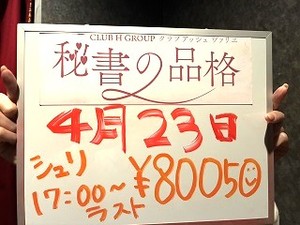 CLUB H GROUP クラブアッシュ ソフリエ
秘書の品格
4月23日
シュリ
17:00～
ラスト
¥80050